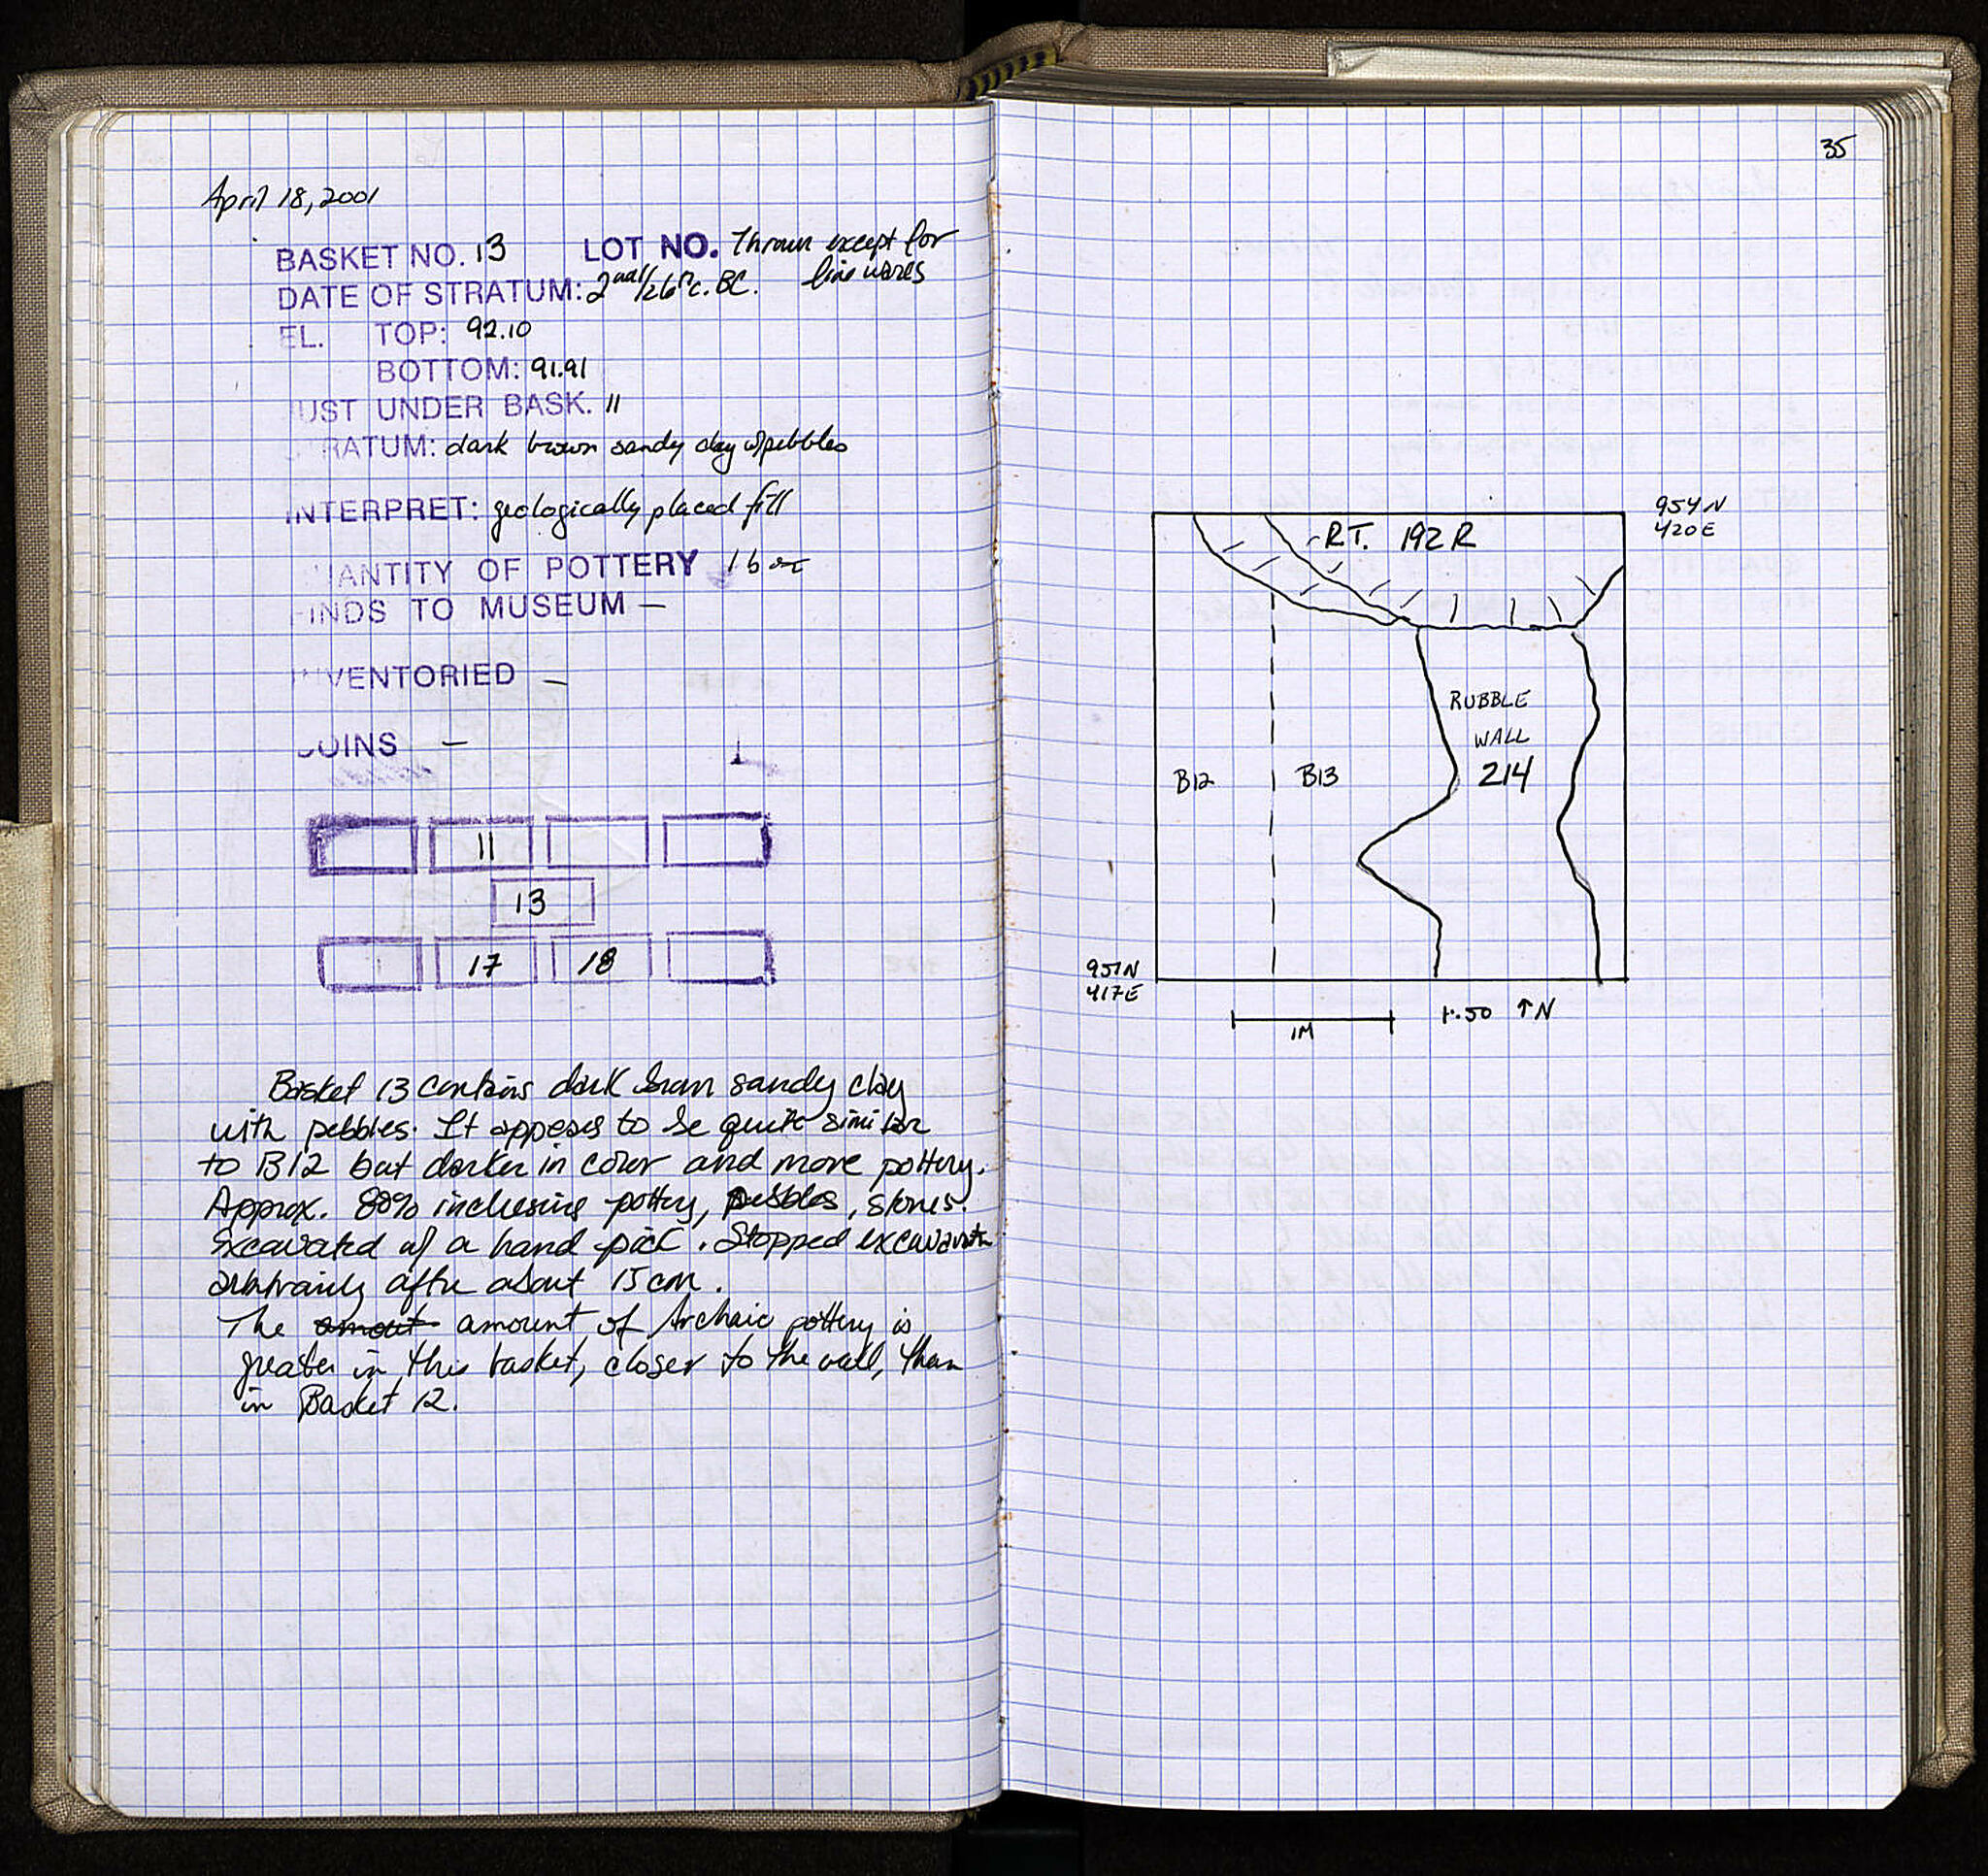 April 18, 2001
BASKET NO. 13 LOT NO. Thrown except for
fine wares
DATE OF STRATUM: 2nd 6th c. BC.
EL. TOP: 92.10
BOTTOM: 91.91
UST UNDER BASK. 11
RATUM: dark brown sandy clay w/pebbles
INTERPRET: geologically placed fill
ANTITY OF POTTERY 1 box
INDS TO MUSEUM —
VENTORIED —
OINS —
11
13
17 18
Basket 13 contains dark brown sandy clay
with pebbles. It appears to be quite similar
to B12 but darker in color and more pottery.
Approx. 80% inclusions pottery, pebbles, stones.
Excavated w/ a hand pick. Stopped excavation
arbitrarily after about 15 cm.
The amout amount of Archaic pottery is
greater in this basket, closer to the wall, than
in Basket 12.
35
954N
420E
R.T. 192 R
RUBBLE
WALL
214
B12 B13
951N
417E
1M
1:50 ↑N